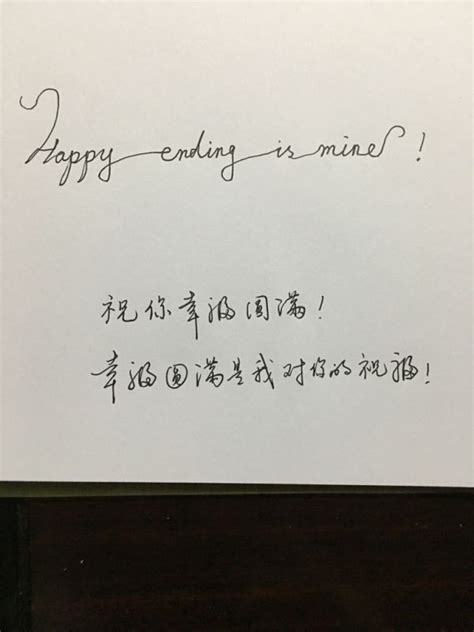 Happy ending is mine!
祝你幸福圆满！
幸福圆满是我对你的祝福！